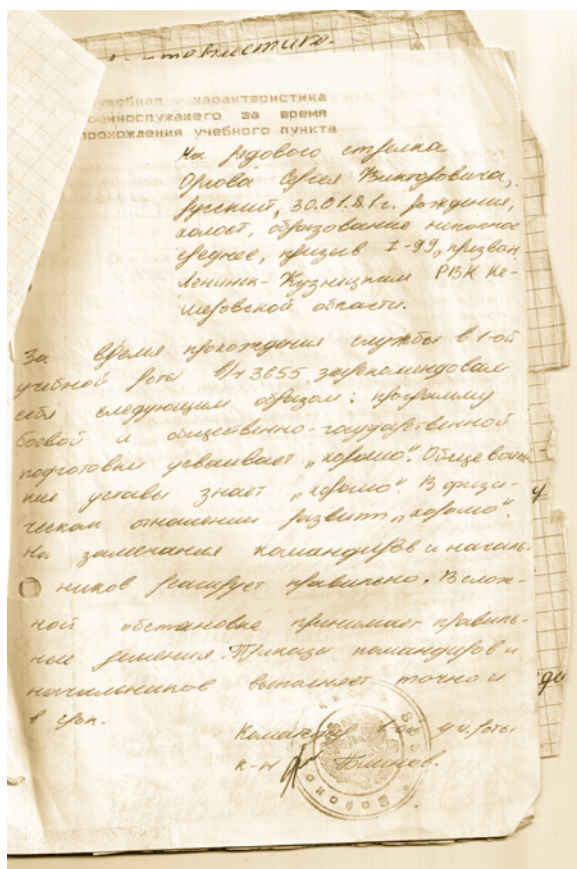 служебная характеристика
военнослужащего за время
прохождения учебного пункта
На рядового стрелка
Орлова Сергея Викторовича,
русский, 30.01.81г. рождения,
холост, образование неполное
среднее, призыв I-99, призван
Ленинск-Кузнецким РВК Ке-
меровской области.
За время прохождения службы в 1-ой
учебной роты в/ч 3655 зарекомендовал
себя следующим образом: программу
боевой и общественно-государственной
подготовки усваивает „хорошо". Общевоинс-
кие уставы знает „хорошо". В физи-
ческом отношении развит „хорошо".
На замечания командиров и началь-
ников реагирует правильно. В слож-
ной обстановке принимает правиль-
ные решения. Приказы командиров и
начальников выполняет точно и
в срок.
Командир 1-ой уч. роты
к-н